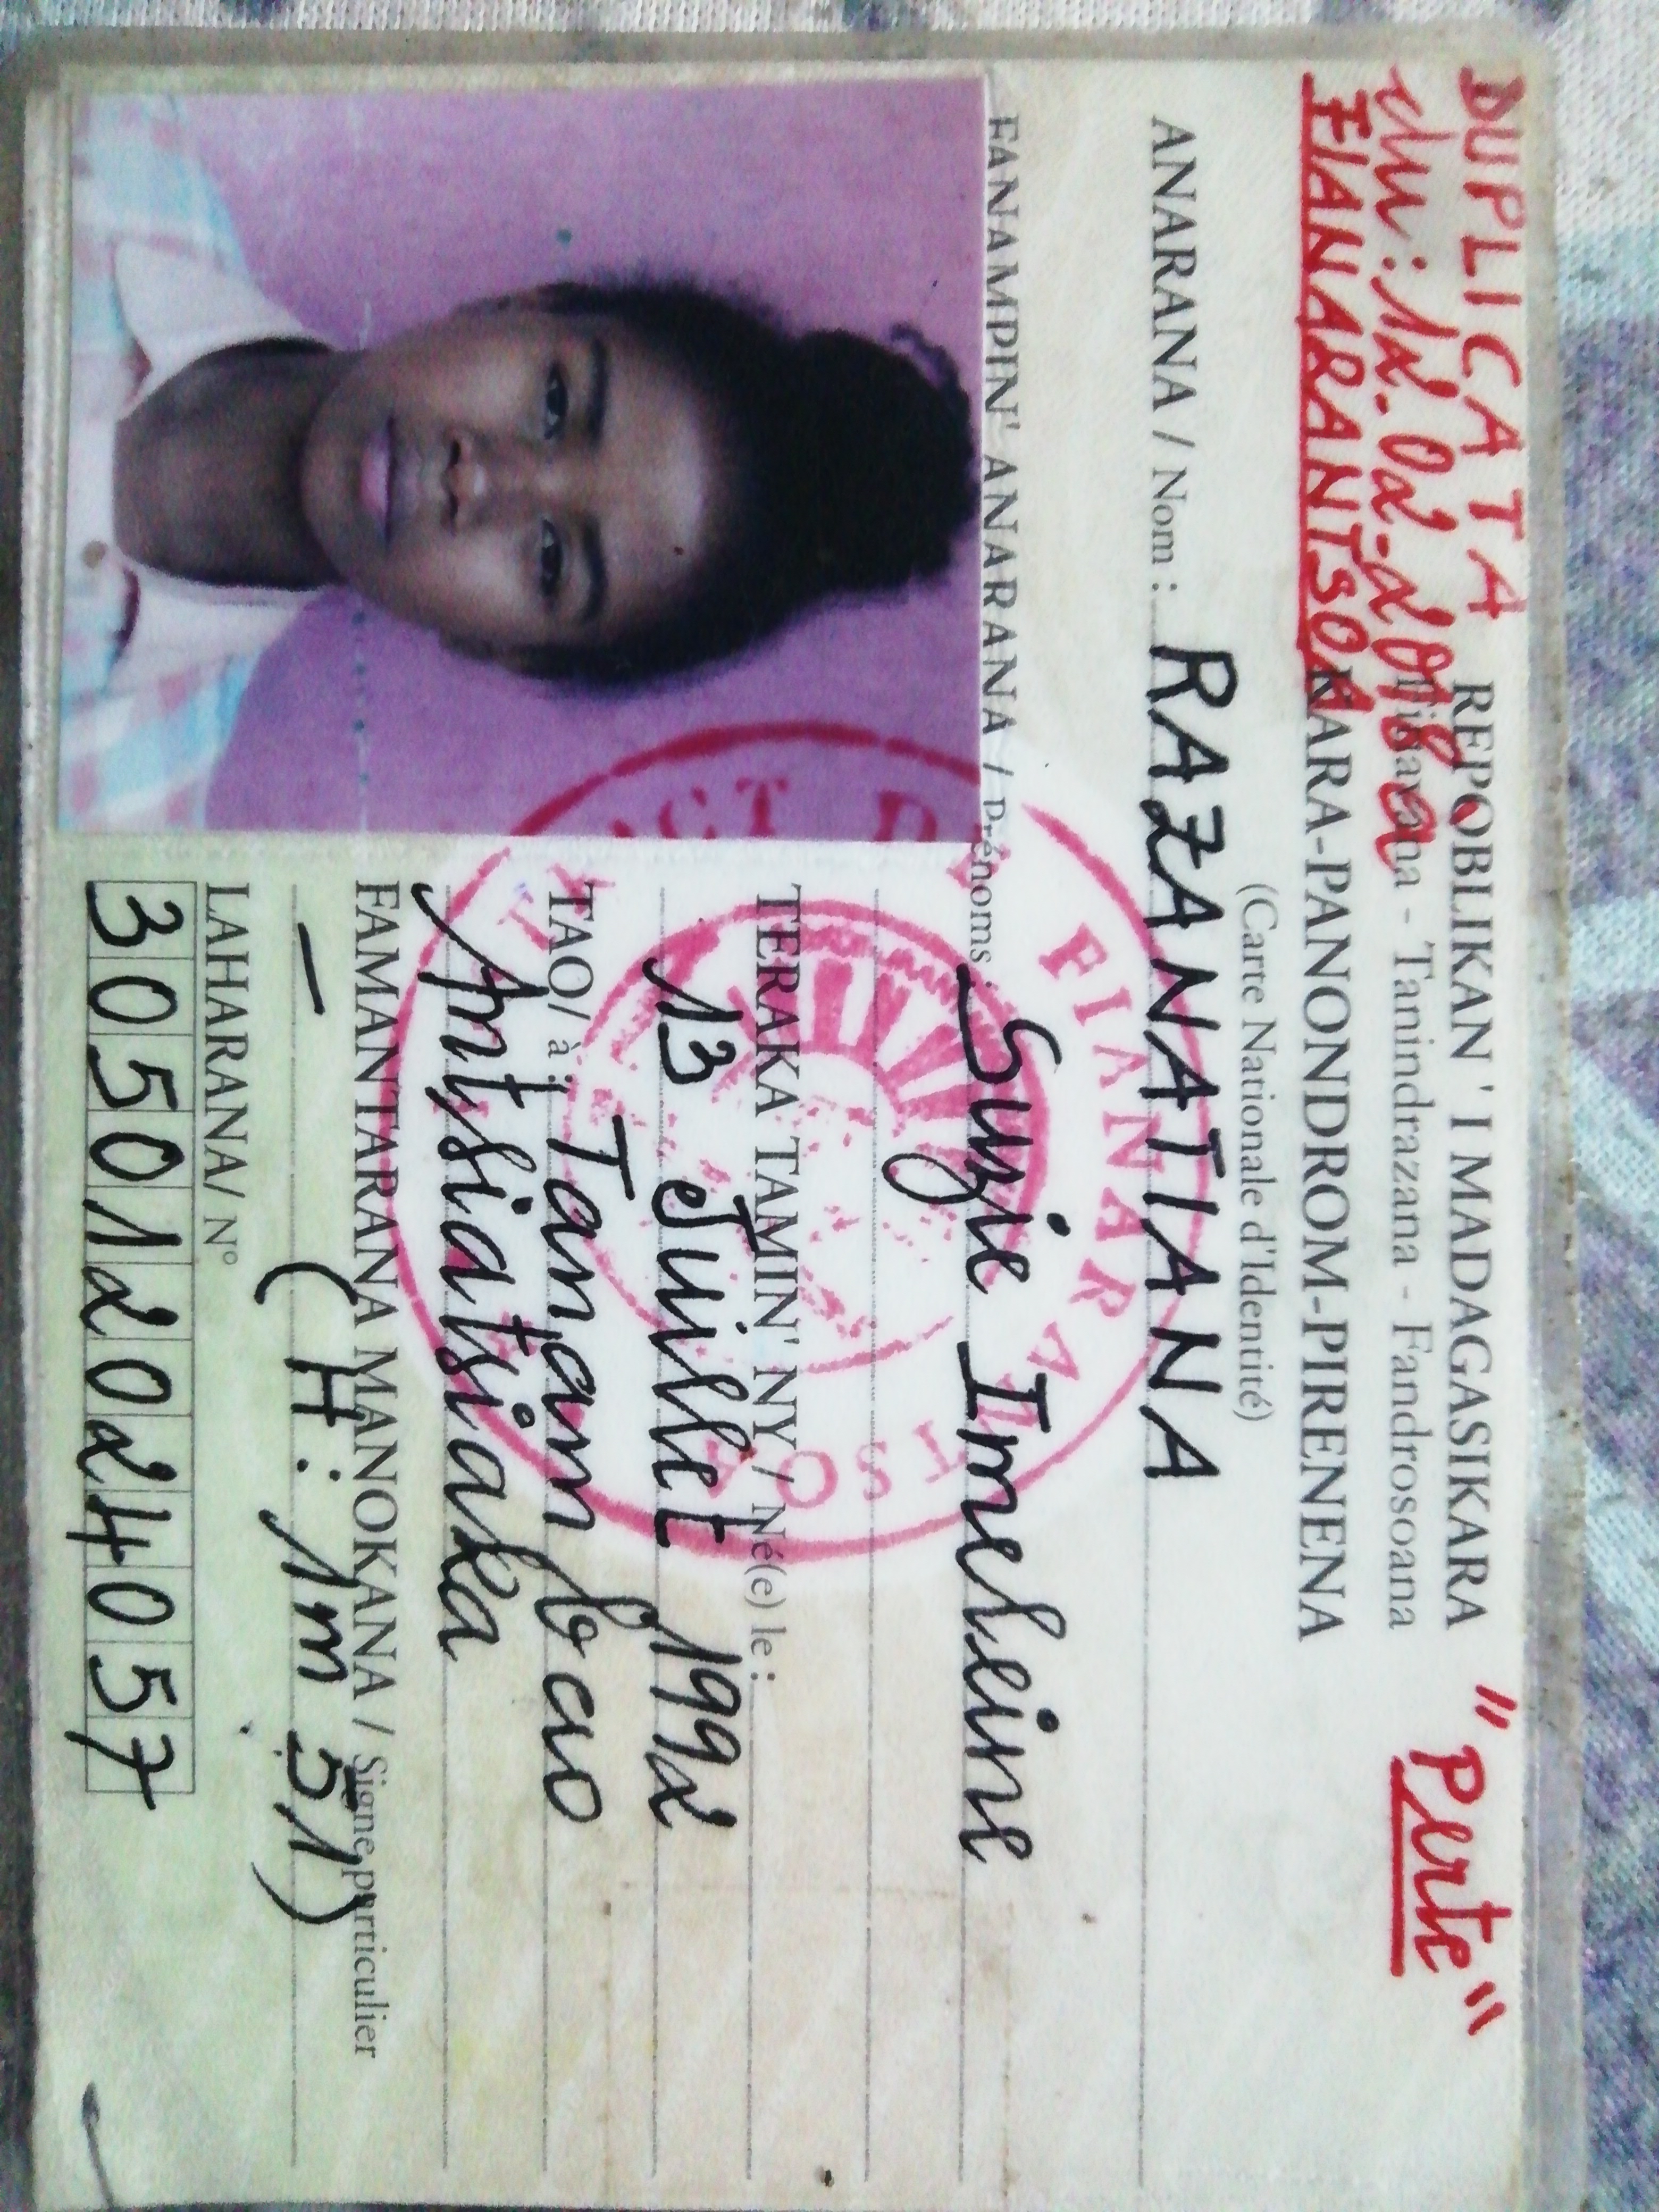 DUPLICATA
REPOBLIKAN ' I MADAGASIKARA
"Perte"
du: 12-02-
Tanindrazana - Fandrosoana
FIANARANTSOA
KARA-PANONDROM-PIRENENA
(Carte Nationale d'Identité)
ANARANA / Nom : RAZANATIANA
FANAMPIN' ANARANA / Prénoms : Suzie Imeleine
TERAKA TAMIN' NY / Né(e) le :
13 Juillet 1992
TAO/ à : Tanambao
Antsiatsiaka
FAMANTARANA MANOKANA / Signe particulier
— (H: 1m 51)
LAHARANA/ N°
305012024057
FIANARANTSOA